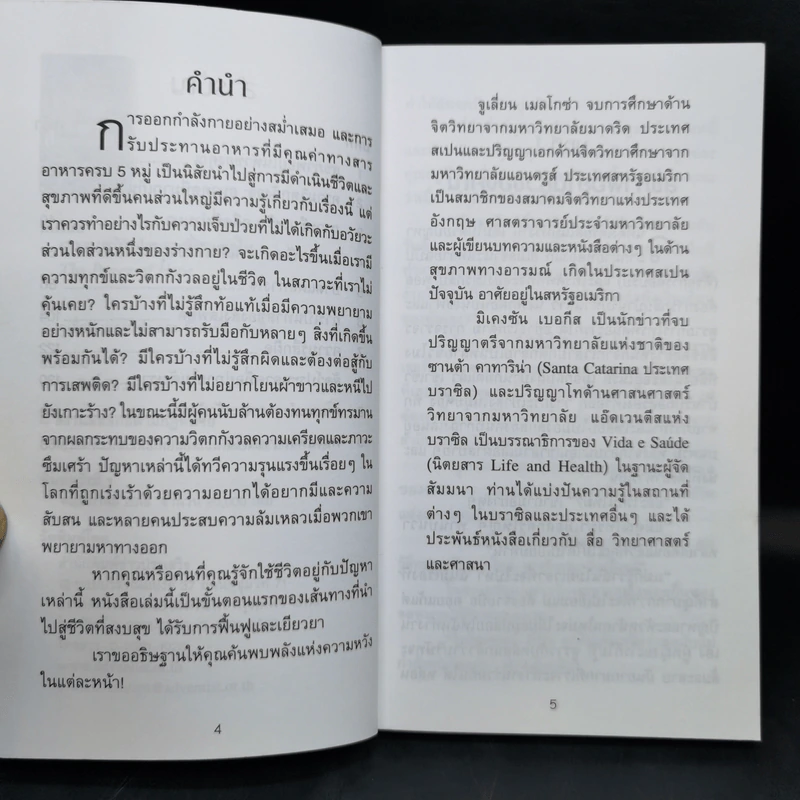 คำนำ
การออกกำลังกายอย่างสม่ำเสมอ และการ
รับประทานอาหารที่มีคุณค่าทางสาร
อาหารครบ 5 หมู่ เป็นนิสัยนำไปสู่การมีดำเนินชีวิตและ
สุขภาพที่ดีขึ้นคนส่วนใหญ่มีความรู้เกี่ยวกับเรื่องนี้ แต่
เราควรทำอย่างไรกับความเจ็บป่วยที่ไม่ได้เกิดกับอวัยวะ
ส่วนใดส่วนหนึ่งของร่างกาย? จะเกิดอะไรขึ้นเมื่อเรามี
ความทุกข์และวิตกกังวลอยู่ในชีวิต ในสภาวะที่เราไม่
คุ้นเคย? ใครบ้างที่ไม่รู้สึกท้อแท้เมื่อมีความพยายาม
อย่างหนักและไม่สามารถรับมือกับหลายๆ สิ่งที่เกิดขึ้น
พร้อมกันได้? มีใครบ้างที่ไม่รู้สึกผิดและต้องต่อสู้กับ
การเสพติด? มีใครบ้างที่ไม่อยากโยนผ้าขาวและหนีไป
ยังเกาะร้าง? ในขณะนี้มีผู้คนนับล้านต้องทนทุกข์ทรมาน
จากผลกระทบของความวิตกกังวลความเครียดและภาวะ
ซึมเศร้า ปัญหาเหล่านี้ได้ทวีความรุนแรงขึ้นเรื่อยๆ ใน
โลกที่ถูกเร่งเร้าด้วยความอยากได้อยากมีและความ
สับสน และหลายคนประสบความล้มเหลวเมื่อพวกเขา
พยายามหาทางออก
หากคุณหรือคนที่คุณรู้จักใช้ชีวิตอยู่กับปัญหา
เหล่านี้ หนังสือเล่มนี้เป็นขั้นตอนแรกของเส้นทางที่นำ
ไปสู่ชีวิตที่สงบสุข ได้รับการฟื้นฟูและเยียวยา
เราขออธิษฐานให้คุณค้นพบพลังแห่งความหวัง
ในแต่ละหน้า!
4
จูเลี่ยน เมลโกซ่า จบการศึกษาด้าน
จิตวิทยาจากมหาวิทยาลัยมาดริด ประเทศ
สเปนและปริญญาเอกด้านจิตวิทยาศึกษาจาก
มหาวิทยาลัยแอนดรูส์ ประเทศสหรัฐอเมริกา
เป็นสมาชิกของสมาคมจิตวิทยาแห่งประเทศ
อังกฤษ ศาสตราจารย์ประจำมหาวิทยาลัย
และผู้เขียนบทความและหนังสือต่างๆ ในด้าน
สุขภาพทางอารมณ์ เกิดในประเทศสเปน
ปัจจุบัน อาศัยอยู่ในสหรัฐอเมริกา
มิเคงซัน เบอกีส เป็นนักข่าวที่จบ
ปริญญาตรีจากมหาวิทยาลัยแห่งชาติของ
ซานต้า คาทาริน่า (Santa Catarina ประเทศ
บราซิล) และปริญญาโทด้านศาสนศาสตร์
วิทยาจากมหาวิทยาลัย แอ๊ดเวนตีสแห่ง
บราซิล เป็นบรรณาธิการของ Vida e Saúde
(นิตยสาร Life and Health) ในฐานะผู้จัด
สัมมนา ท่านได้แบ่งปันความรู้ในสถานที่
ต่างๆ ในบราซิลและประเทศอื่นๆ และได้
ประพันธ์หนังสือเกี่ยวกับ สื่อ วิทยาศาสตร์
และศาสนา
5